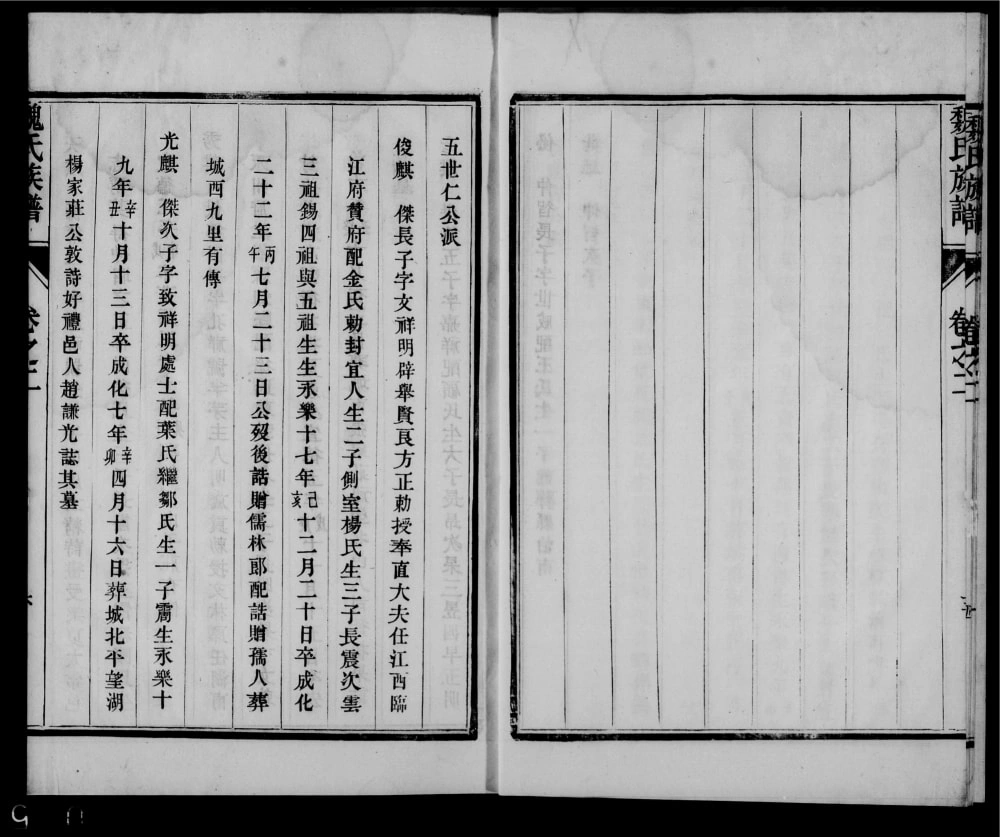 魏氏族譜
卷之二
五世仁公派
俊麒　傑長子字文祥明辟舉賢良方正勅授奉直大夫任江西臨
江府贊府配金氏勅封宜人生二子側室楊氏生三子長震次雲
三祖錫四祖與五祖生生永樂十七年己亥十二月二十日卒成化
二十二年丙午七月二十三日公歿後誥贈儒林郎配誥贈孺人葬
城西九里有傳
光麒　傑次子字致祥明處士配葉氏繼鄒氏生一子霌生永樂十
九年辛丑十月十三日卒成化七年辛卯四月十六日葬城北平望湖
楊家莊公敦詩好禮邑人趙謙光誌其墓
魏氏族譜
卷之二
六